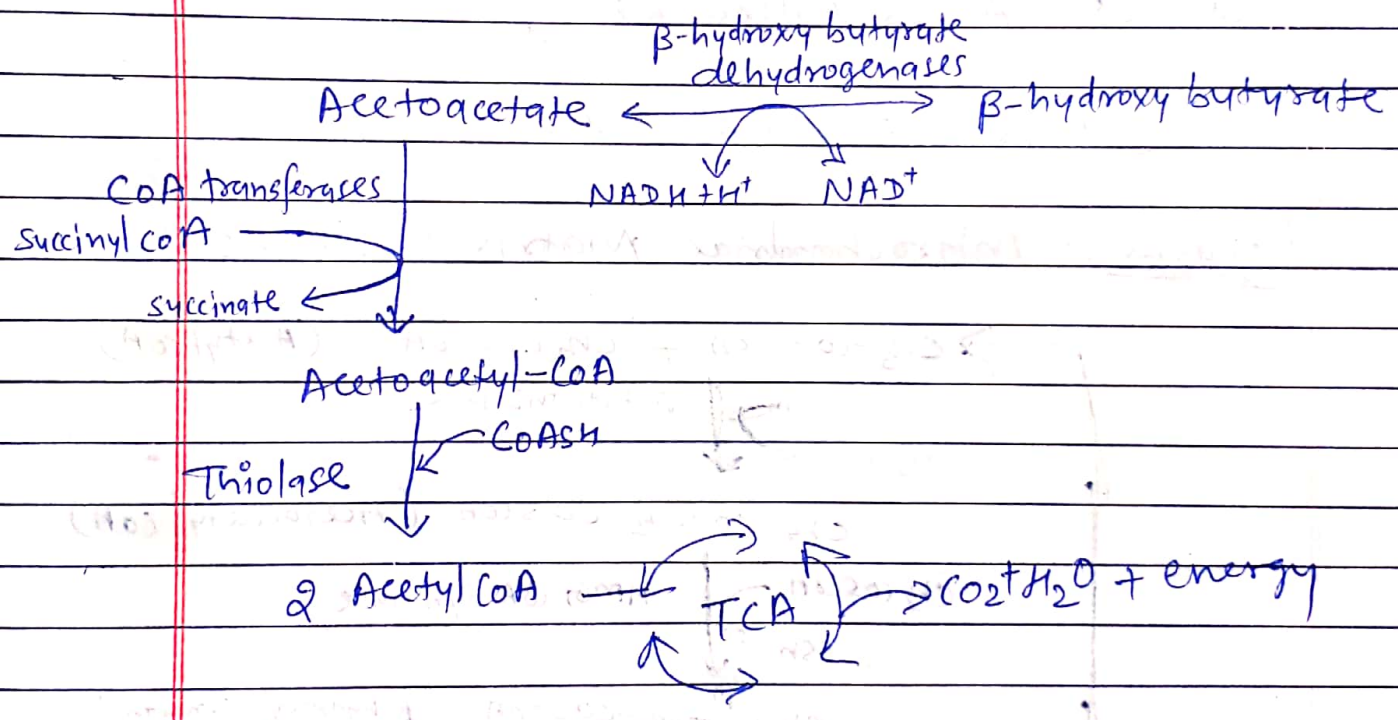 β-hydroxy butyrate
dehydrogenases
Acetoacetate
β-hydroxy butyrate
NADH + H⁺
NAD⁺
CoA transferases
Succinyl coA
succinate
Acetoacetyl-CoA
CoASH
Thiolase
2 Acetyl CoA
TCA
CO2 + H2O + energy